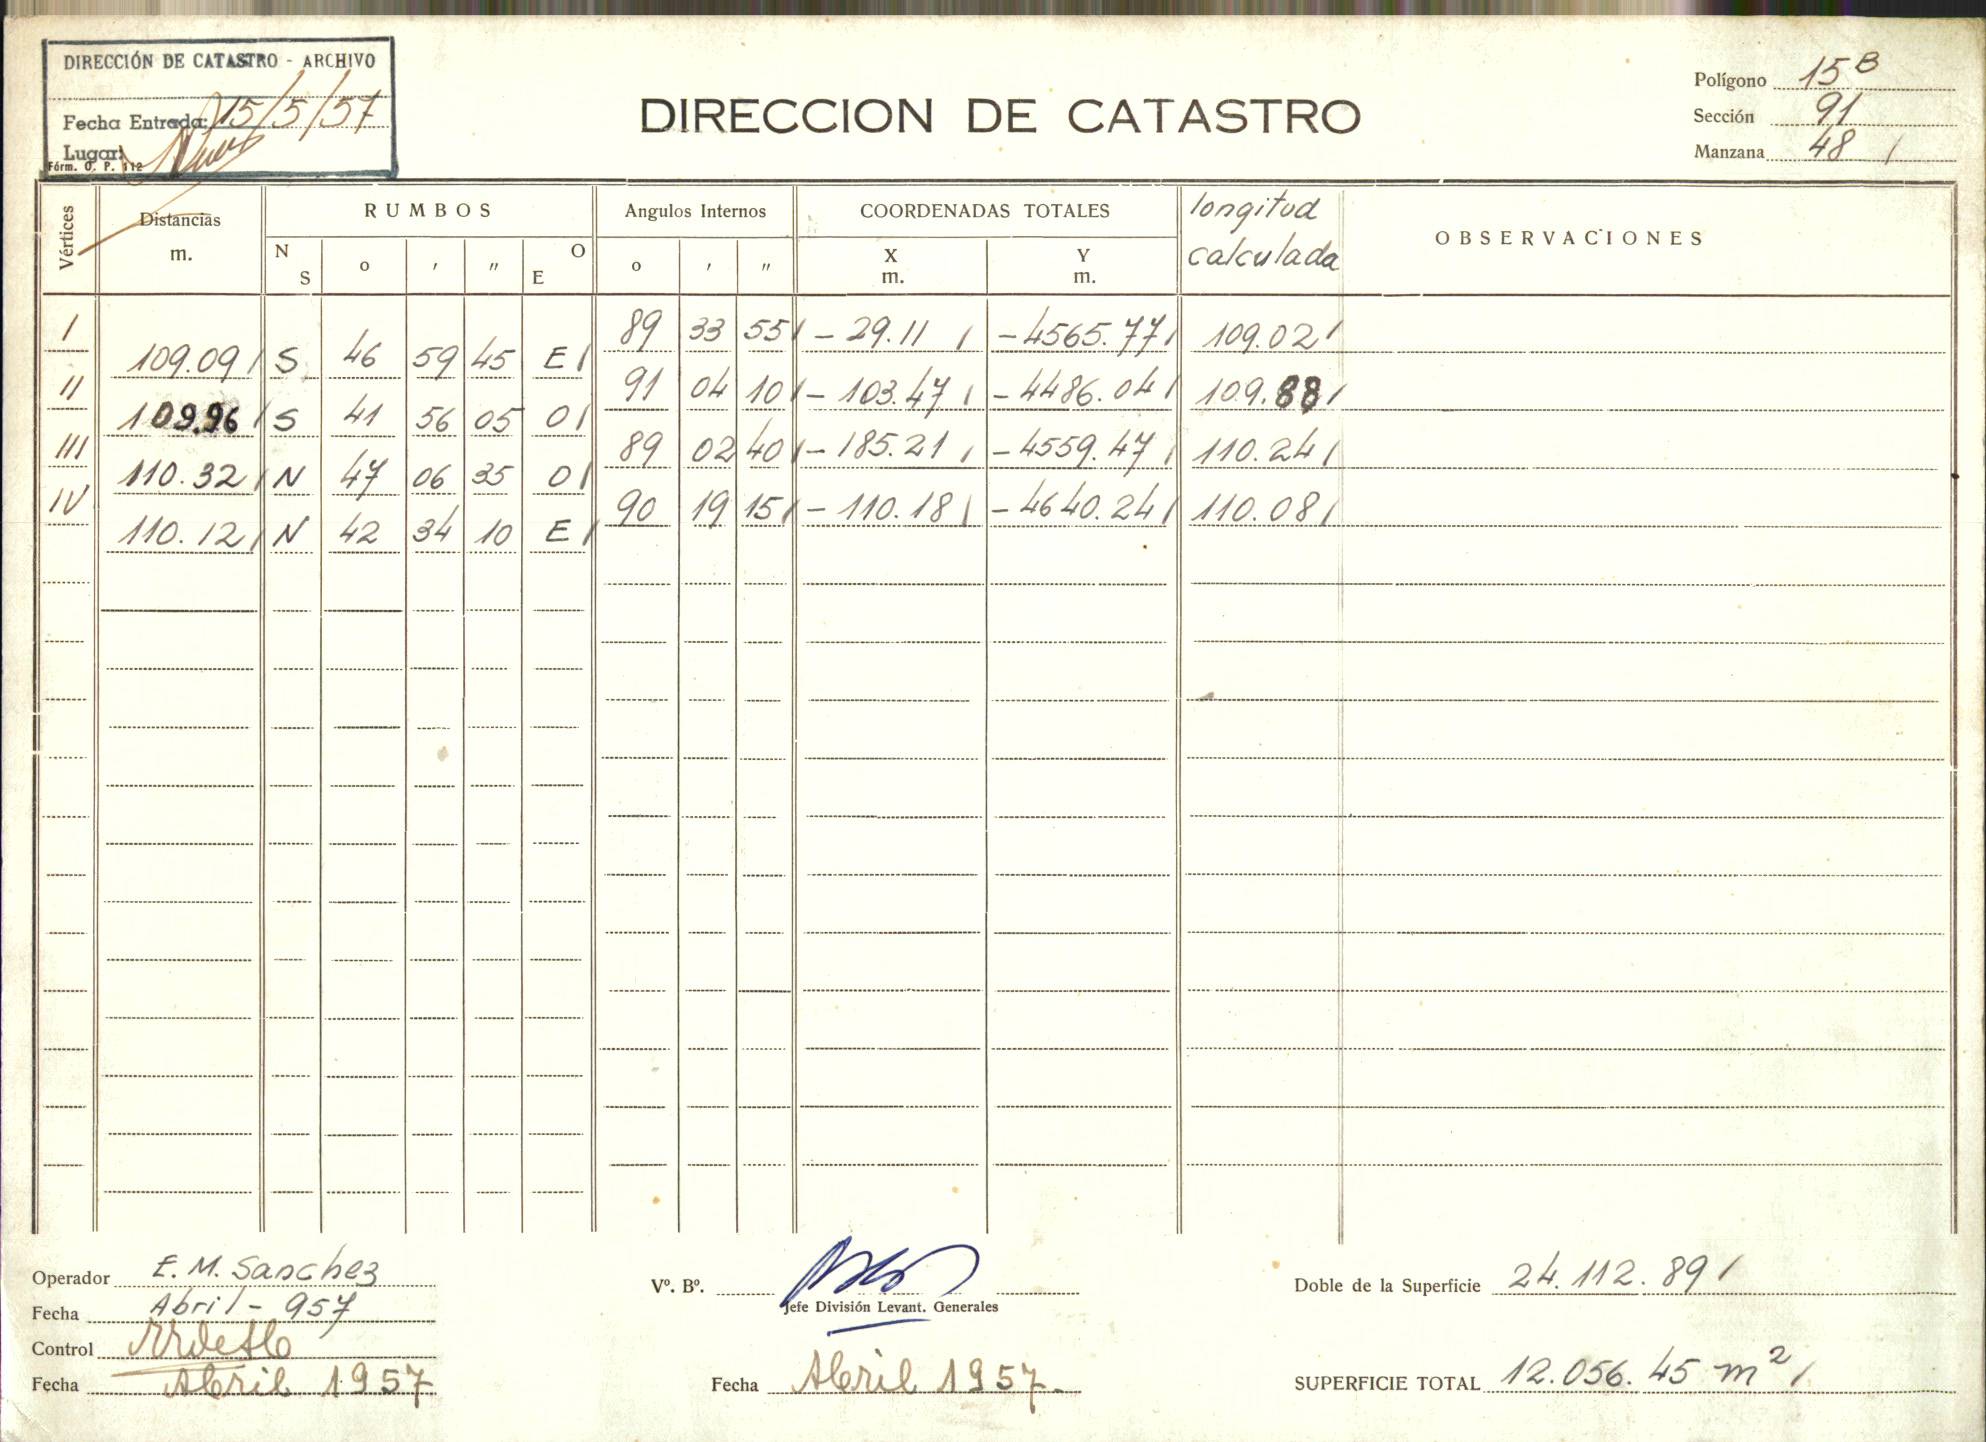 DIRECCIÓN DE CATASTRO - ARCHIVO
Fecha Entrada: 15/5/57
Lugar:
Fórm. O. P. 112
DIRECCION DE CATASTRO
Polígono 15 B
Sección 91
Manzana 48 /
Vértices
Distancias
m.
RUMBOS
N
S
o
'
"
O
E
Angulos Internos
o
'
"
COORDENADAS TOTALES
X
m.
Y
m.
longitud
calculada
OBSERVACIONES
I 89 33 55 / - 29.11 / - 4565.77 / 109.02 /
109.09 / S 46 59 45 E /
II 91 04 10 / - 103.47 / - 4486.04 / 109.88 /
109.96 / S 41 56 05 O /
III 89 02 40 / - 185.21 / - 4559.47 / 110.24 /
110.32 / N 47 06 35 O /
IV 90 19 15 / - 110.18 / - 4640.24 / 110.08 /
110.12 / N 42 34 10 E /
Operador E. M. Sanchez
Fecha Abril - 957
Control
Fecha Abril 1957
Vº. Bº.
Jefe División Levant. Generales
Fecha Abril 1957.
Doble de la Superficie 24.112.89 /
SUPERFICIE TOTAL 12.056.45 m² /